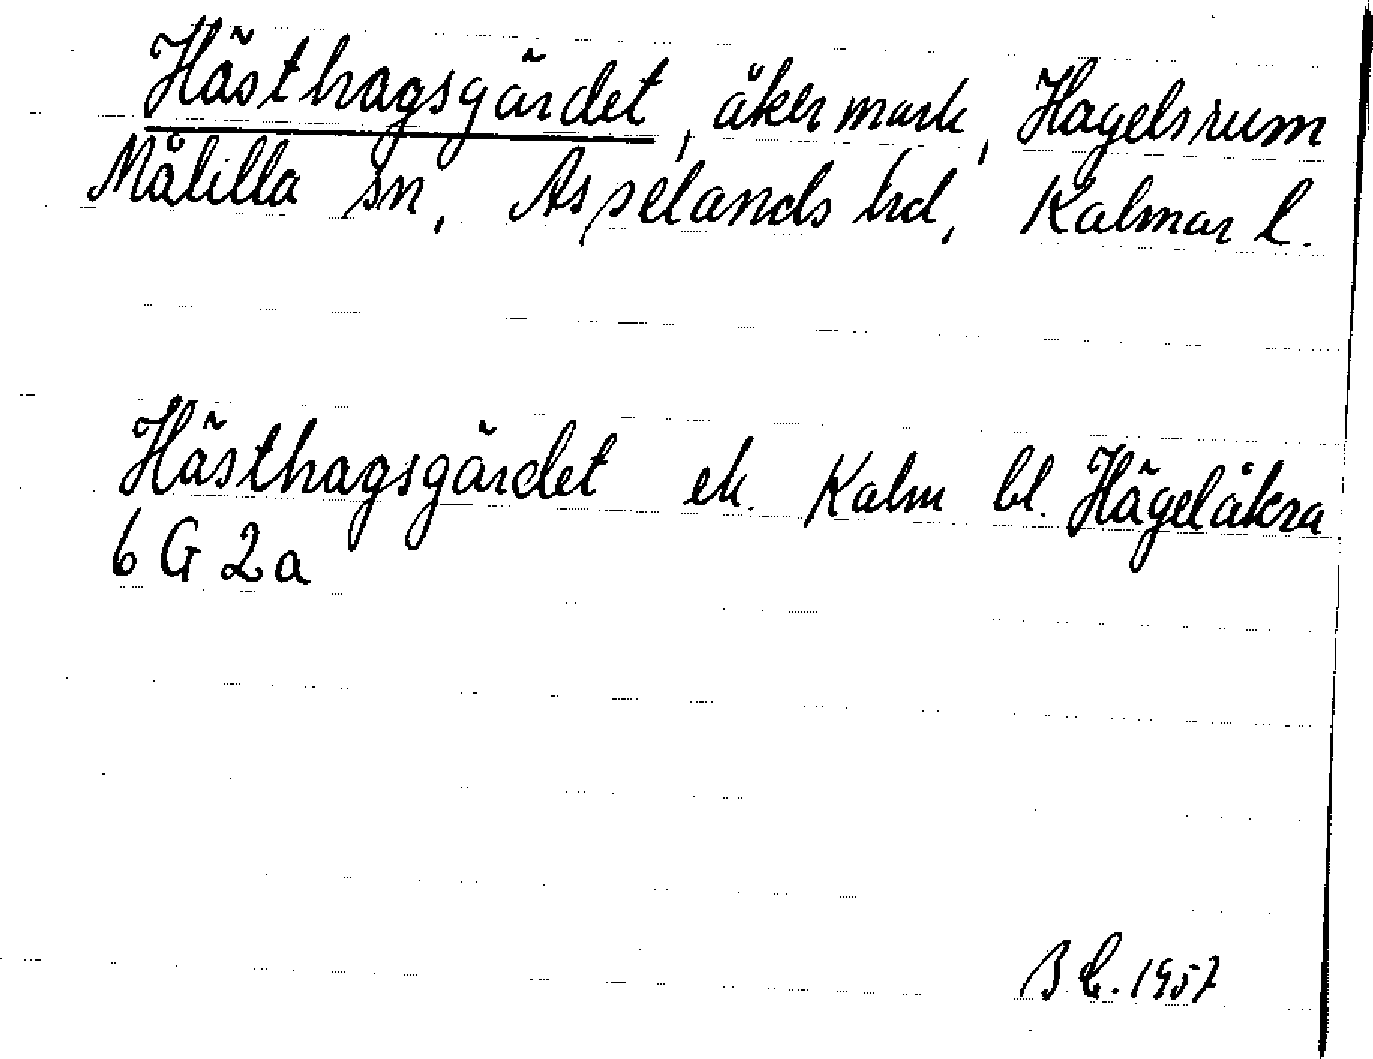 Hästhagsgärdet, åkermark, Hagelsrum
Målilla sn, Aspelands hd, Kalmar l.
Hästhagsgärdet ek. Kalm bl. Hägelåkra
6 G 2a
1957